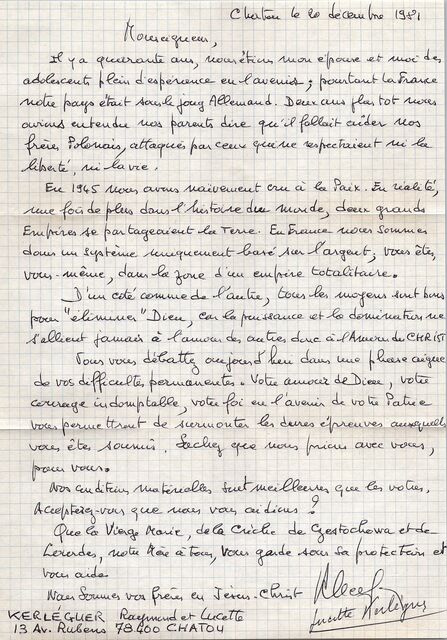 Chatou le 20 décembre 1981
Monseigneur,
Il y a quarante ans, nous étions mon épouse et moi des
adolescents plein d'espérance en l'avenir; pourtant la France
notre pays était sous le joug Allemand. Deux ans plus tôt nous
avions entendu nos parents dire qu'il fallait aider nos
frères Polonais, attaqués par ceux qui ne respectaient ni la
liberté, ni la vie.
En 1945 nous avons naïvement cru à la Paix. En réalité,
une fois de plus dans l'histoire du monde, deux grands
Empires se partageaient la Terre. En France nous sommes
dans un système uniquement basé sur l'argent, vous êtes,
vous-même, dans la zone d'un empire totalitaire.
D'un coté comme de l'autre, tous les moyens sont bons
pour "éliminer" Dieu, car la puissance et la domination ne
s'allient jamais à l'amour des autres donc à l'Amour du CHRIST
Vous vous débattez aujourd'hui dans une phase aigüe
de vos difficultés permanentes. Votre amour de Dieu, votre
courage indomptable, votre foi en l'avenir de votre Patrie
vous permettront de surmonter les dures épreuves auxquelles
vous êtes soumis. Sachez que nous prions avec vous,
pour vous.
Nos conditions matérielles sont meilleures que les votres.
Accepteriez-vous que nous vous aidions ?
Que la Vierge Marie, de la Crèche de Czestochowa et de
Lourdes, notre Mère à tous, vous garde sous sa protection et
vous aide.
Nous sommes vos frères en Jésus-Christ
Lucette Kerléguer
KERLÉGUER Raymond et Lucette
13 Av. Rubens 78400 CHATOU